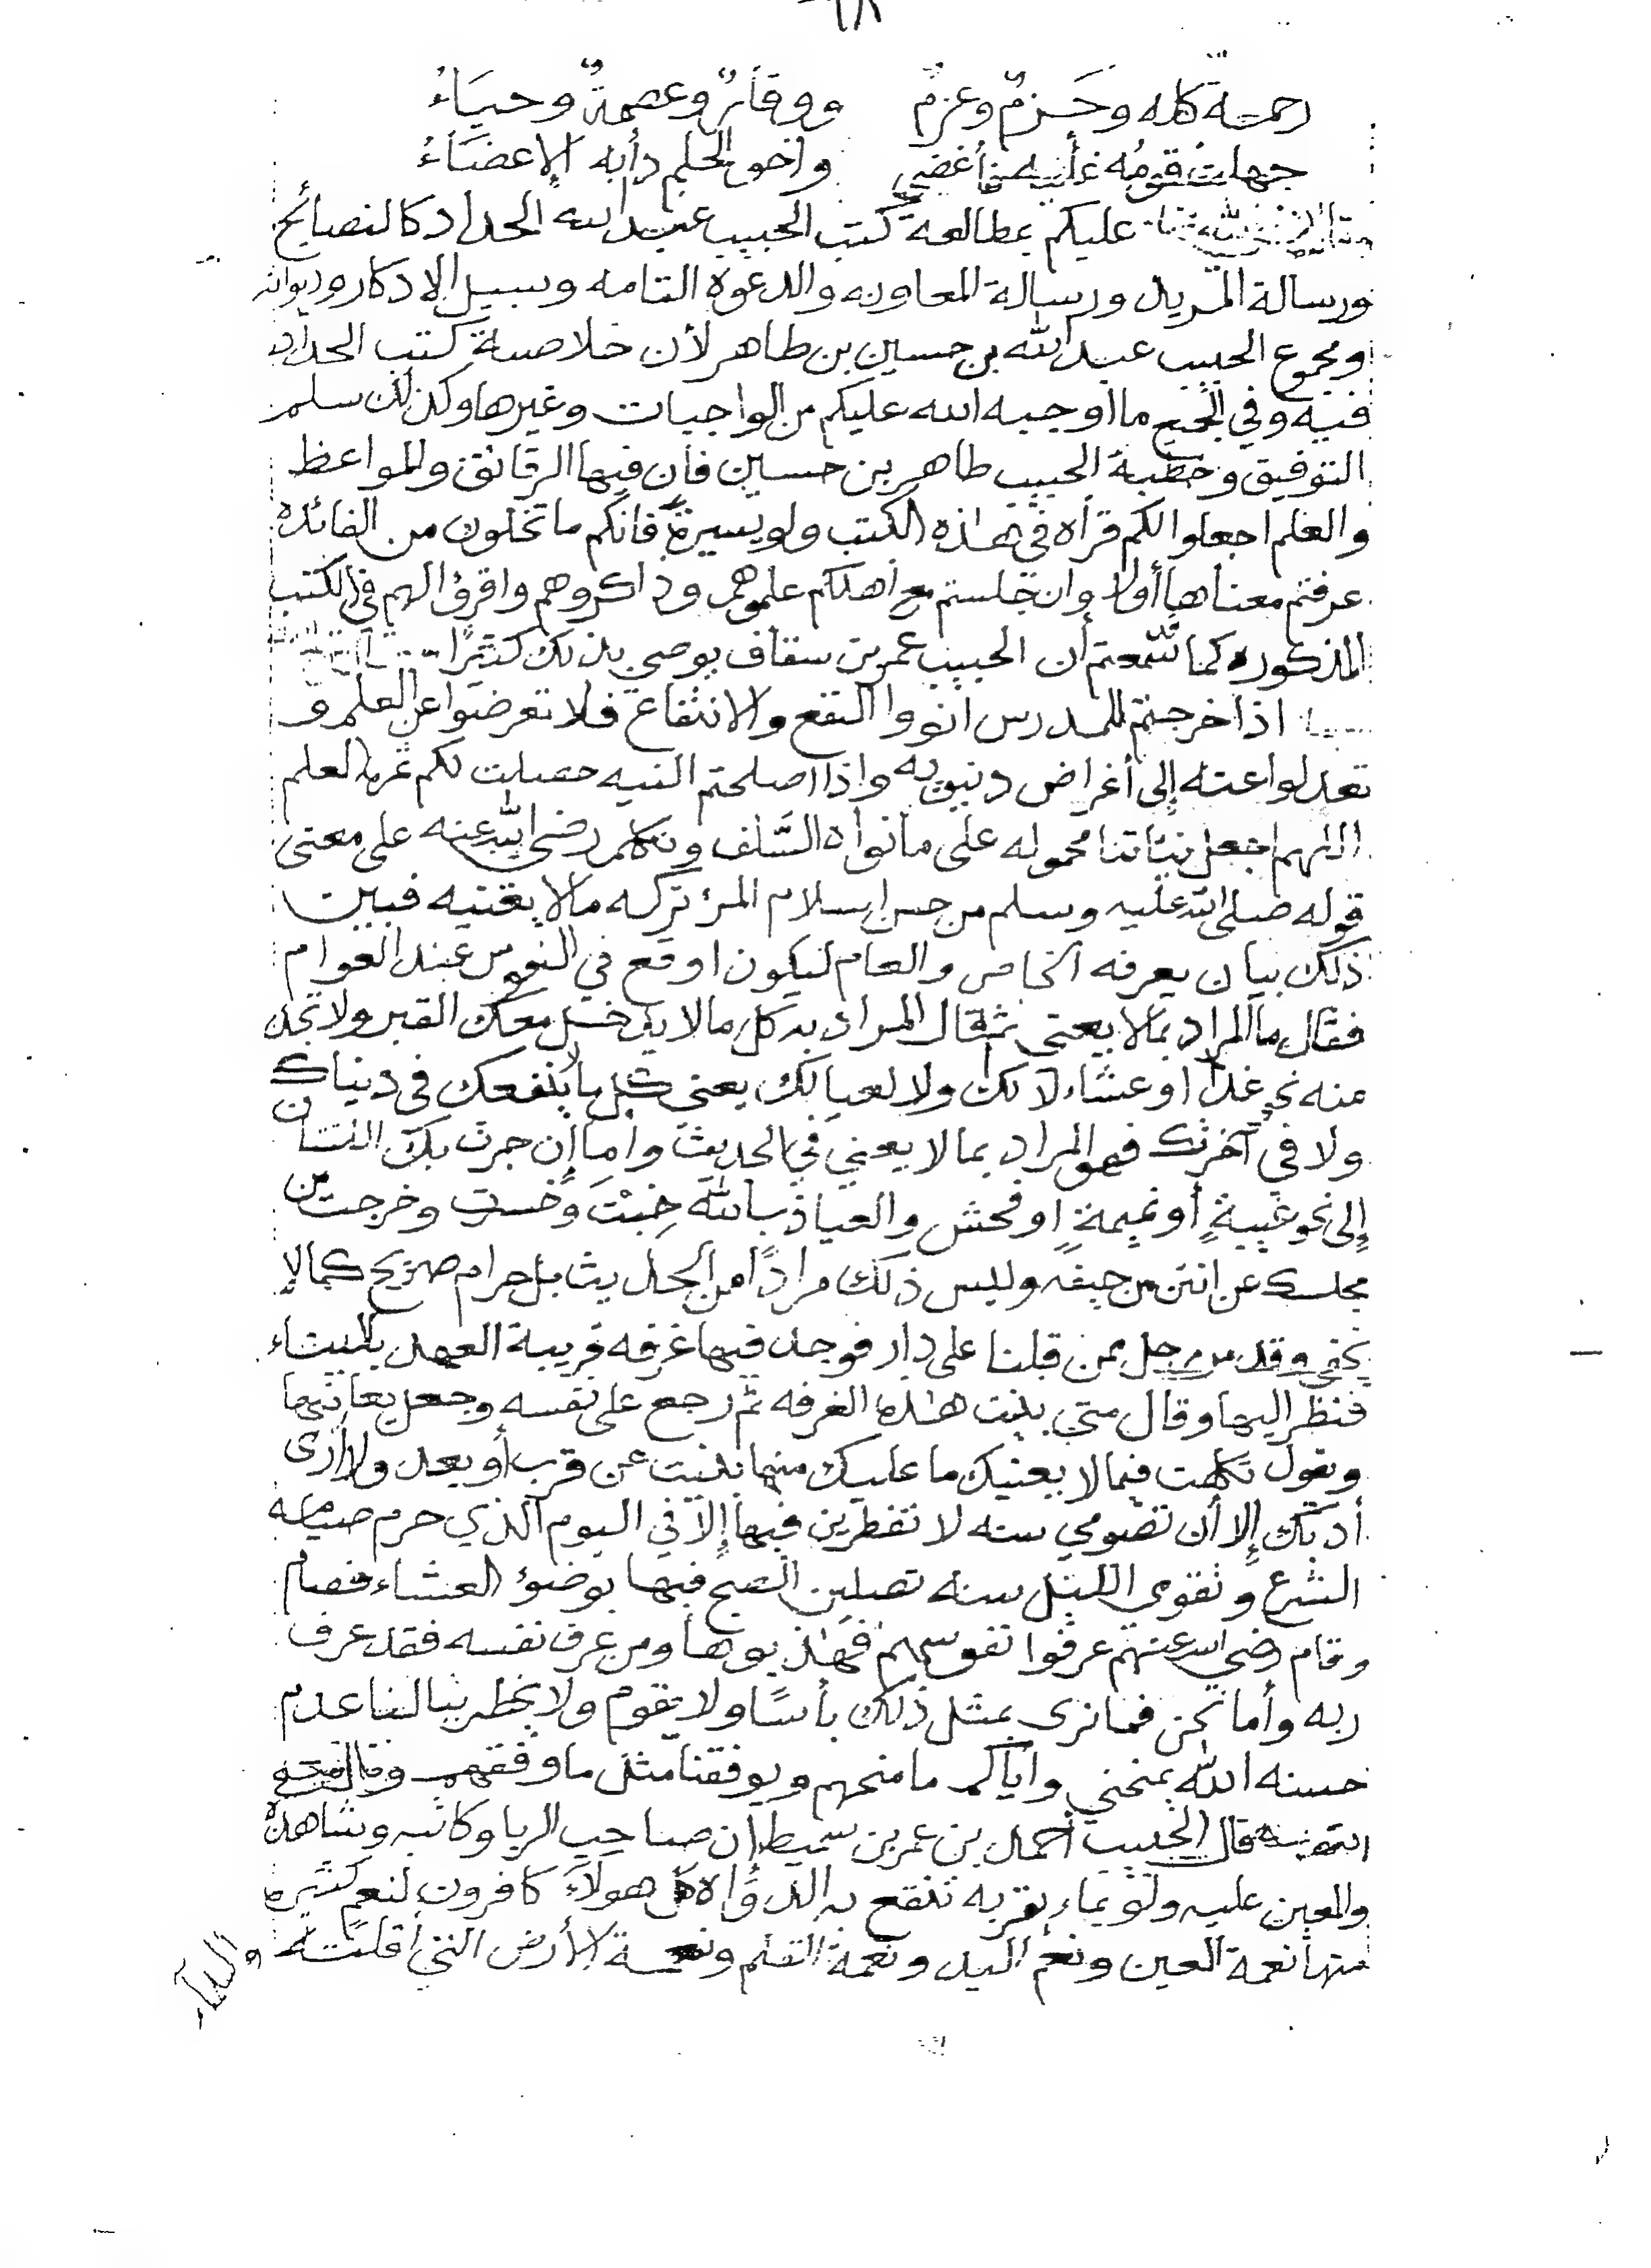 ٦٨
رحمة كله وحَزمٌ وعزمٌ ووقارٌ وعصمةٌ وحيَاءُ
جهلتْ قومُه عليه فأغضى وأخو الحلم دأبه الإغضَاءُ
عليكم بمطالعة كتب الحبيب عبد الله الحداد كالنصائح
ورسالة المريد ورسالة المعاونه والدعوة التامه وسبيل الادكار وديوانه
ومجموع الحبيب عبد الله بن حسين بن طاهر لأن خلاصة كتب الحداد
فيه وفي الجميع ما اوجبه الله عليكم من الواجبات وغيرها وكذلك سلم
التوفيق وخطبة الحبيب طاهر بن حسين فان فيها الرقائق والمواعظ
والعلم اجعلوا لكم قرأه في هذه الكتب ولو يسيرة فانكم ما تخلون من الفائده
عرفتم معناها أولا وان جلستم مع اهلكم علموهم وذاكروهم واقرؤا لهم في الكتب
المذكوره كما سمعتم أن الحبيب عمر بن سقاف يوصي بذلك كثيرًا
اذا خرجتم للمدرس انووا النفع والانتفاع فلا تعرضوا عن العلم و
تعدلوا عنه إلى أغراض دنيويه واذا اصلحتم النيه حصلت لكم ثمرة العلم
اللهم اجعل نياتنا محموله على ما نواه السَّلف وتكلم رضي الله عنه على معنى
قوله صلى الله عليه وسلم من حسن إسلام المرء تركه مالا يعنيه فبين
ذلك بيان يعرفه الخاص والعام ليكون اوقع في النفوس عند العوام
فقال ما المراد بمالا يعني ثم قال المراد به كل مالا يدخل معك القبر ولا تجد
منه نحو غدا او عشاء لا لك ولا لعيالك يعني كل مالا ينفعك في دنياك
ولا في آخرتك فهو المراد بما لا يعني في الحديث واما إن جرت بك اللسان
إلى نحو غيبةٍ أو نميمةٍ او فحش والعياذ بالله خِبْتَ وخسرت وخرجت من
مجلسك عن انتن من جيفه وليس ذلك مرادًا من الحديث بل حرام صريح كما لا
يخفى وقد مر رجل ممن قبلنا على دار فوجد فيها غرفه قريبة العهد بالبناء
فنظر اليها وقال متى بنيت هذه الغرفه ثم رجع على نفسه وجعل يعاتبها
ويقول تكلمت فيما لا يعنيك ما عليك منها بنيت عن قرب أو بعد ولا أرى
أدبك إلا أن تصومي سنه لا تفطرين فيها إلا في اليوم الذي حرم صيامه
الشرع وتقومي الليل سنه تصلين الصبح فيها بوضوء العشاء فصام
وقام رضي الله عنهم عرفوا نفوسهم فهذبوها ومن عرف نفسه فقد عرف
ربه وأما نحن فما نرى بمثل ذلك بأسًا ولا يقوم ولا يخطر ببالنا عدم
حسنه الله يمنحني واياكم ما منحهم ويوفقنا مثل ما وفقهم وقال
قال الحبيب أحمد بن عمر بن سميط إن صاحب الربا وكاتبه وشاهده
والمعين عليه ولو بماء بقربه تنقع به الدواة كل هولاء كافرون لنعمٍ كثيرة
منها نعمة العين ونعم اليد ونعمة القلم ونعمة الأرض التي أقلته
والماء